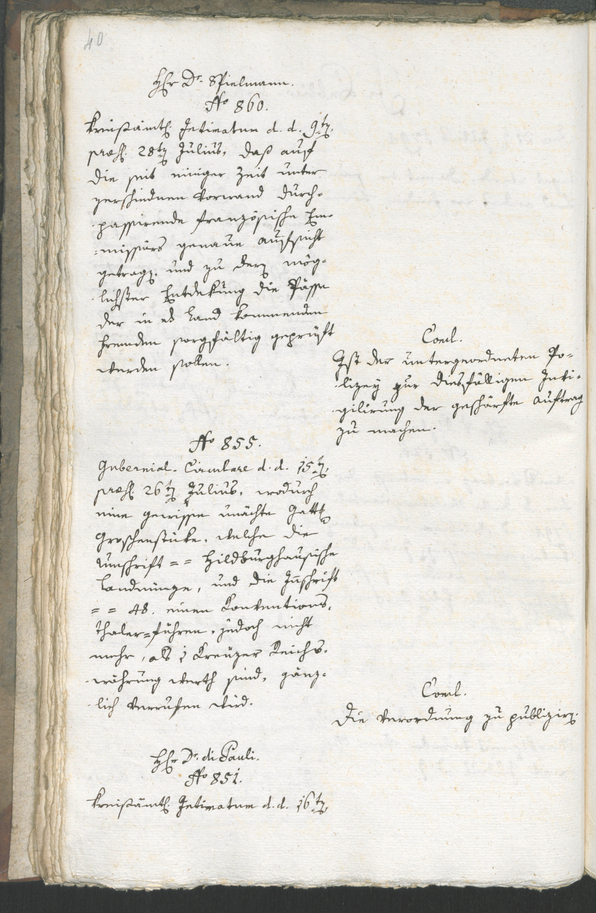 40
Hr. Dr. Spielmann.
No 860.
Kreisämtl. Intimatum d. d. 9t.
praes. 28t. Julius, daß auf
die seit einiger Zeit unter
verschiednen Vorwand durch-
passirende französische Em-
-missärs genaue Aufsicht
getragen, und zu deren mög-
lichster Entdekung die Pässe
der in das Land kommenden
fremden sorgfältig geprüft
werden sollen.
Concl.
Ist der untergeordneten Po-
-lizey zur diesfälligen Invi-
-gilirung der geschärfte Auftrag
zu machen.
No 855.
Gubernial-Circulare d. d. 15t.
praes. 26t. Julius, wodurch
eine gewisse unächte Gatt.
Groschenstücke, welche die
Umschrift == Hildburghausische
Landmünze, und die Inschrift
== 48. einen Konventions-
thaler = führen, jedoch nicht
mehr, als 1 Kreuzer Reichs-
währung werth sind, gänz-
lich verrufen wird.
Concl.
Die Verordnung zu publiziren.
Hr. Dr. di Pauli.
No 851.
Kreisämtl. Intimatum d. d. 16t.